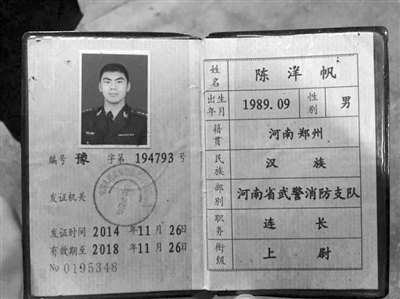 编号 豫 字第 194793 号
发证机关
发证时间 2014 年 11 月 26 日
有效期至 2018 年 11 月 26 日
No 0195348
姓名 陈洋帆
出生年月 1989.09 性别 男
籍贯 河南郑州
民族 汉族
部别 河南省武警消防支队
职务 连长
衔级 上尉